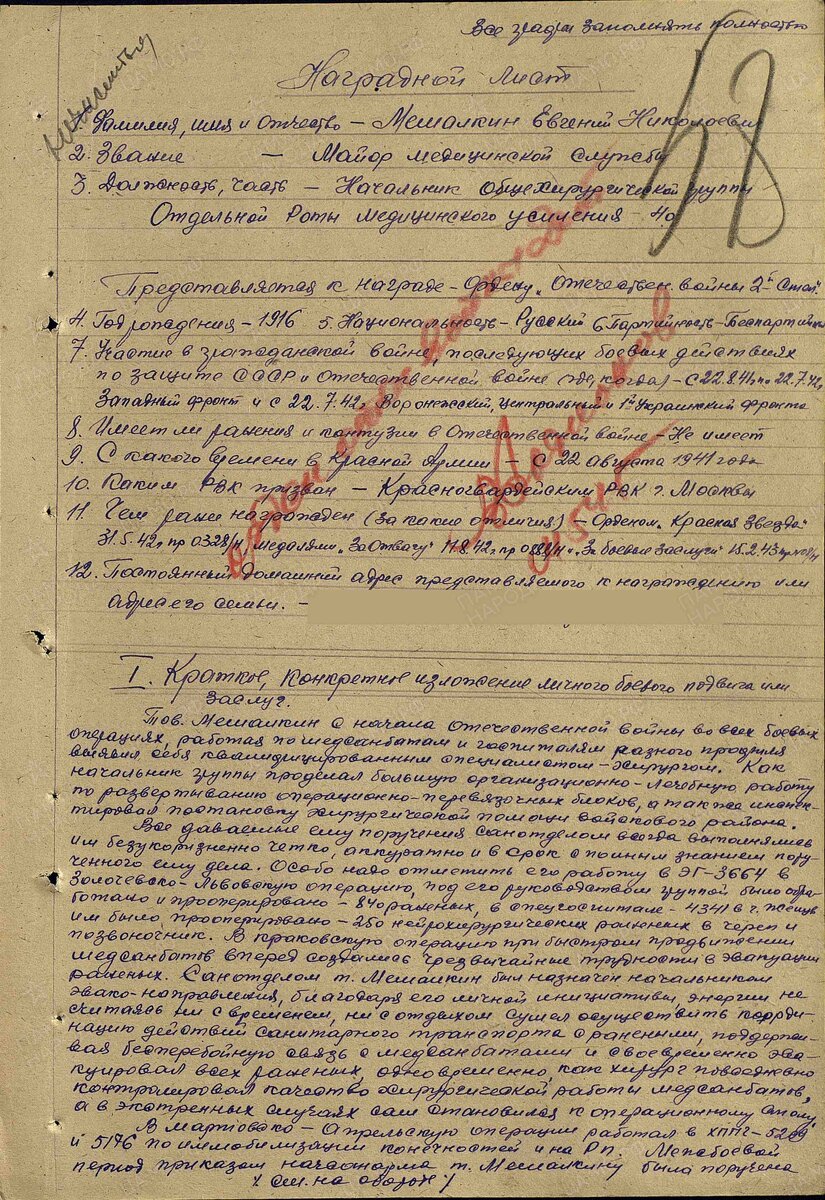 Все графы заполнять полностью
Наградной лист
1. Фамилия, имя и отчество — Мешалкин Евгений Николаевич
2. Звание — Майор медицинской службы
3. Должность, часть — Начальник общехирургической группы
Отдельной Роты медицинского усиления
Представляется к награде — Ордену "Отечествен. войны 2й Степ."
4. Год рождения — 1916 5. Национальность — Русский 6. Партийность — Беспартийный
7. Участие в гражданской войне, последующих боевых действиях
по защите СССР и отечественной войне (где, когда) — с 22.8.41г. по 22.7.42г.
Западный фронт и с 22.7.42г. Воронежский, Центральный и 1й Украинский фронта
8. Имеет ли ранения и контузии в Отечественной войне — Не имеет
9. С какого времени в Красной Армии — С 22 августа 1941 года
10. Каким РВК призван — Красногвардейским РВК г. Москвы
11. Чем ранее награжден (за какие отличия) — Орденом "Красная Звезда"
31.5.42г. пр 0328/н, медалями "За Отвагу" 11.8.42г. пр "За боевые заслуги" 15.2.43
12. Постоянный домашний адрес представляемого к награждению или
адрес его семьи. —
I. Краткое, конкретное изложение личного боевого подвига или
заслуг.
Тов. Мешалкин с начала отечественной войны во всех боевых
операциях, работая по медсанбатам и госпиталям разного профиля
выявил себя квалифицированным специалистом-хирургом. Как
начальник группы проделал большую организационно-лечебную работу
по развертыванию операционно-перевязочных блоков, а также инспек-
тировал постановку хирургической помощи войскового района.
Все даваемые ему поручения Санотделом всегда выполнялись
им безукоризненно четко, аккуратно и в срок с полным знанием пору-
ченного ему дела. Особо надо отметить его работу в ЭГ-3664 в
Золочевско-Львовскую операцию, под его руководством группой было обра-
ботано и прооперировано — 840 раненых, в спецгоспитале — 4341 в г. Жешув
им было прооперировано — 250 нейрохирургических раненых в череп и
позвоночник. В краковскую операцию при быстром продвижении
медсанбатов вперед создались чрезвычайные трудности в эвакуации
раненых. Санотделом т. Мешалкин был назначен начальником
эвако-направления, благодаря его личной инициативы, энергии не
считаясь ни с временем, ни с отдыхом сумел осуществить коорди-
нацию действий санитарного транспорта с ранеными, поддержи-
вая бесперебойную связь с медсанбатами и своевременно эва-
куировал всех раненых, одновременно, как хирург повседневно
контролировал качество хирургической работы медсанбатов,
а в экстренных случаях сам становился к операционному столу.
В мартовско-апрельскую операции работал в ХППГ-5209
и 5176 по иммобилизации конечностей и на Рп. Межбоевой
период приказом начсанарма т. Мешалкину была поручена
/ см. на обороте /
58